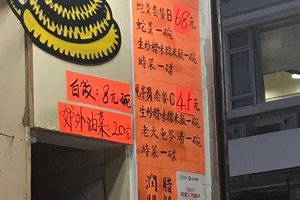 蛇羹套餐B68元
蛇羹一碗
生炒腊味糯米飯一碗
時菜一碟
套餐C45元
生炒腊味糯米飯一碗
老火龟苓湯一碗
時菜一碟
白饭：8元碗
郊外油菜：20元
潤腸
腊腸